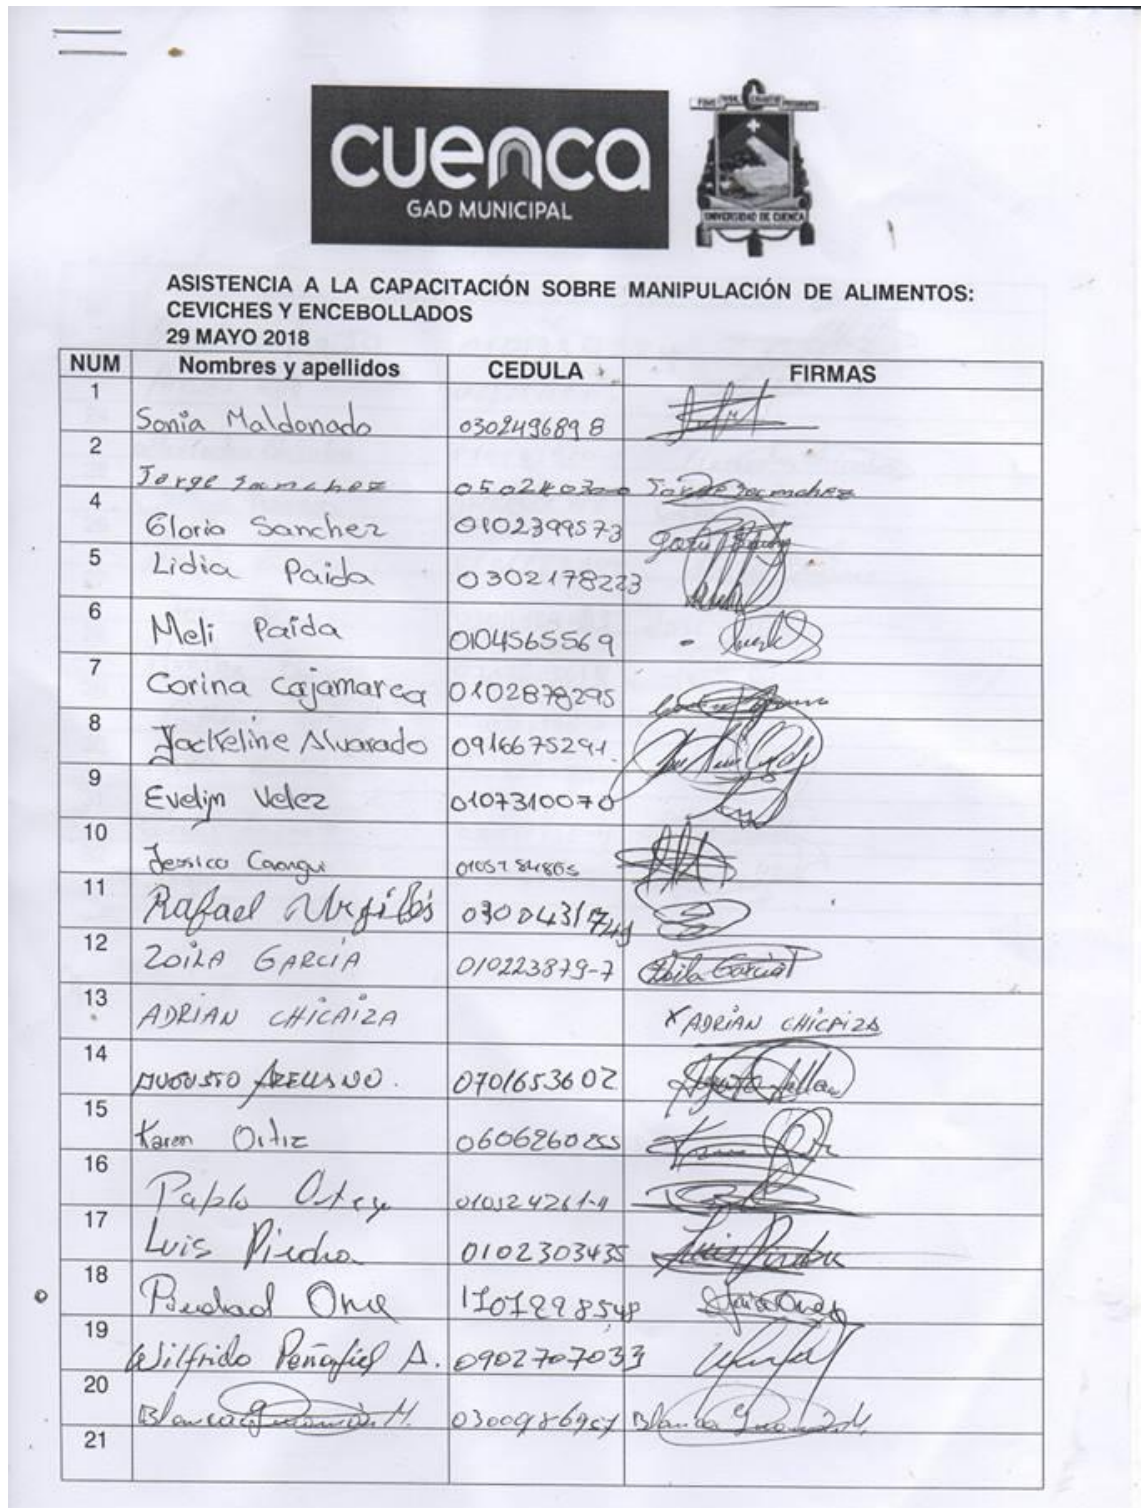 cuenca
GAD MUNICIPAL
UNIVERSIDAD DE CUENCA
ASISTENCIA A LA CAPACITACIÓN SOBRE MANIPULACIÓN DE ALIMENTOS:
CEVICHES Y ENCEBOLLADOS
29 MAYO 2018
NUM Nombres y apellidos CEDULA FIRMAS
1 Sonia Maldonado 0302496898
2 Jorge Sanchez Jorge Sanchez
4 Gloria Sanchez 0102399573
5 Lidia Paida 0302178223
6 Meli Paida 0104565569
7 Corina Cajamarca 0102878295
8 Jackeline Alvarado 0916675291
9 Evelyn Velez 0107310070
10 Jessica
11 Rafael
12 ZOILA GARCÍA 010223879-7 Zoila Garcia
13 ADRIAN CHICAIZA X ADRIAN CHICAIZA
14 AUGUSTO 0701653602
15 Karen Ortiz 0606260255
16 Pablo
17 Luis Piedra 0102303435 Luis Piedra
18 Piedad
19 Wilfrido Peñafiel A. 0902707033
20 Blanca Blanca
21